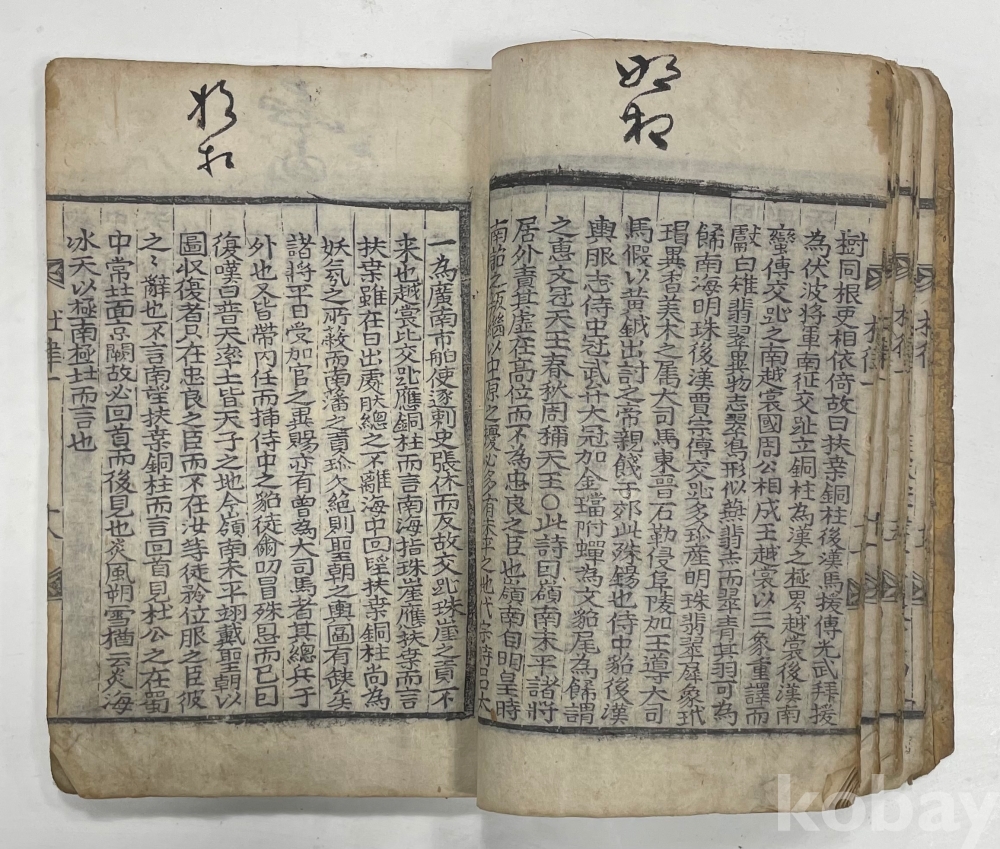 樹同根更相依倚故曰扶桒銅柱後漢馬援傳光武拜援
為伏波将軍南征交趾立銅柱為漢之極界越裳後漢南
蠻傳交趾之南越裳國周公相成王越裳以三象重譯而
獻白雉翡翠異物志翠鳥形似燕翡赤而翠青其羽可為
餙南海明珠後漢賈宗傳交趾多珍産明珠翡翠犀象玳
瑁異香美木之属大司馬東晉石勒侵阜陵加王導大司
馬假以黃鉞出討之帝親餞于郊此殊錫也侍中貂後漢
輿服志侍中冠武弁大冠加金璫附蟬為文貂尾為餙謂
之惠文冠天王春秋周稱天王○此詩曰嶺南未平諸将
居外責其虛在高位而不為忠良之臣也嶺南自明皇時
南詔之叛繼以中原之擾必多有未平之地代宗時吕太
一為廣南市舶使逐剌史張休而反故交趾珠崖之貢不
来也越裳比交趾應銅柱而言南海指珠崖應扶桒而言
扶桒雖在日出處然總之不離海中回望扶桒銅柱尚為
妖氛之所蔽而南藩之貢珍久絶則聖朝之輿圖有缺矣
諸將平日受加官之異賜亦有曾為大司馬者其總兵于
外也又皆帶內任而揷侍中之貂徒偷叨冒殊恩而已曰
復嘆曰普天率土皆天子之地今嶺南未平翊戴聖朝以
圖収復者只在忠良之臣而不在汝等徒務位服之臣彼
之〻辭也不言南望扶桒銅柱而言回首見杜公之在蜀
中常北面京闕故必回首而後見也炎風朔雪猶云炎海
冰天以極南極北而言也
杜律一
kobay